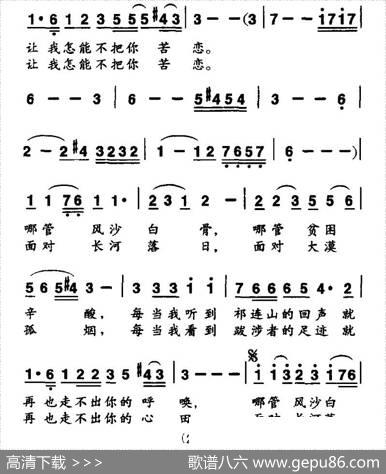 1·6 1 2 3 5 5 5 5 #4 3 | 3 - - (3 | 7 - - i 7 i 7 |
让我怎能不把你苦恋。
让我怎能不把你苦恋。
6 - - 3 | 6 - - 5 #4 5 4 | 3 - - 6 |
2 - 2 #4 3 2 3 2 | 1 - 1 2 7 6 5 7 | 6 - - - ) |
1 1 7 6 1 1· | 2 3 1 2 - | 2 2 3 5 5 6 |
哪管 风沙白骨, 哪管 贫困
面对 长河落日, 面对 大漠
5 6 5 #4 3 · 3 | 3 3 3 i i | 7 6 6 6 5 4· 2 |
辛酸, 每当我听到祁连山的回声就
孤烟, 每当我看到跋涉者的足迹就
1·6 1 2 3 5 5 #4 3 | 3 - - - | i i 3 2 3 i 7 6 |
再也走不出你的呼唤, 哪管风沙白
再也走不出你的心田
(2
高清下载 >>>
歌谱八六 www.gepu86.com